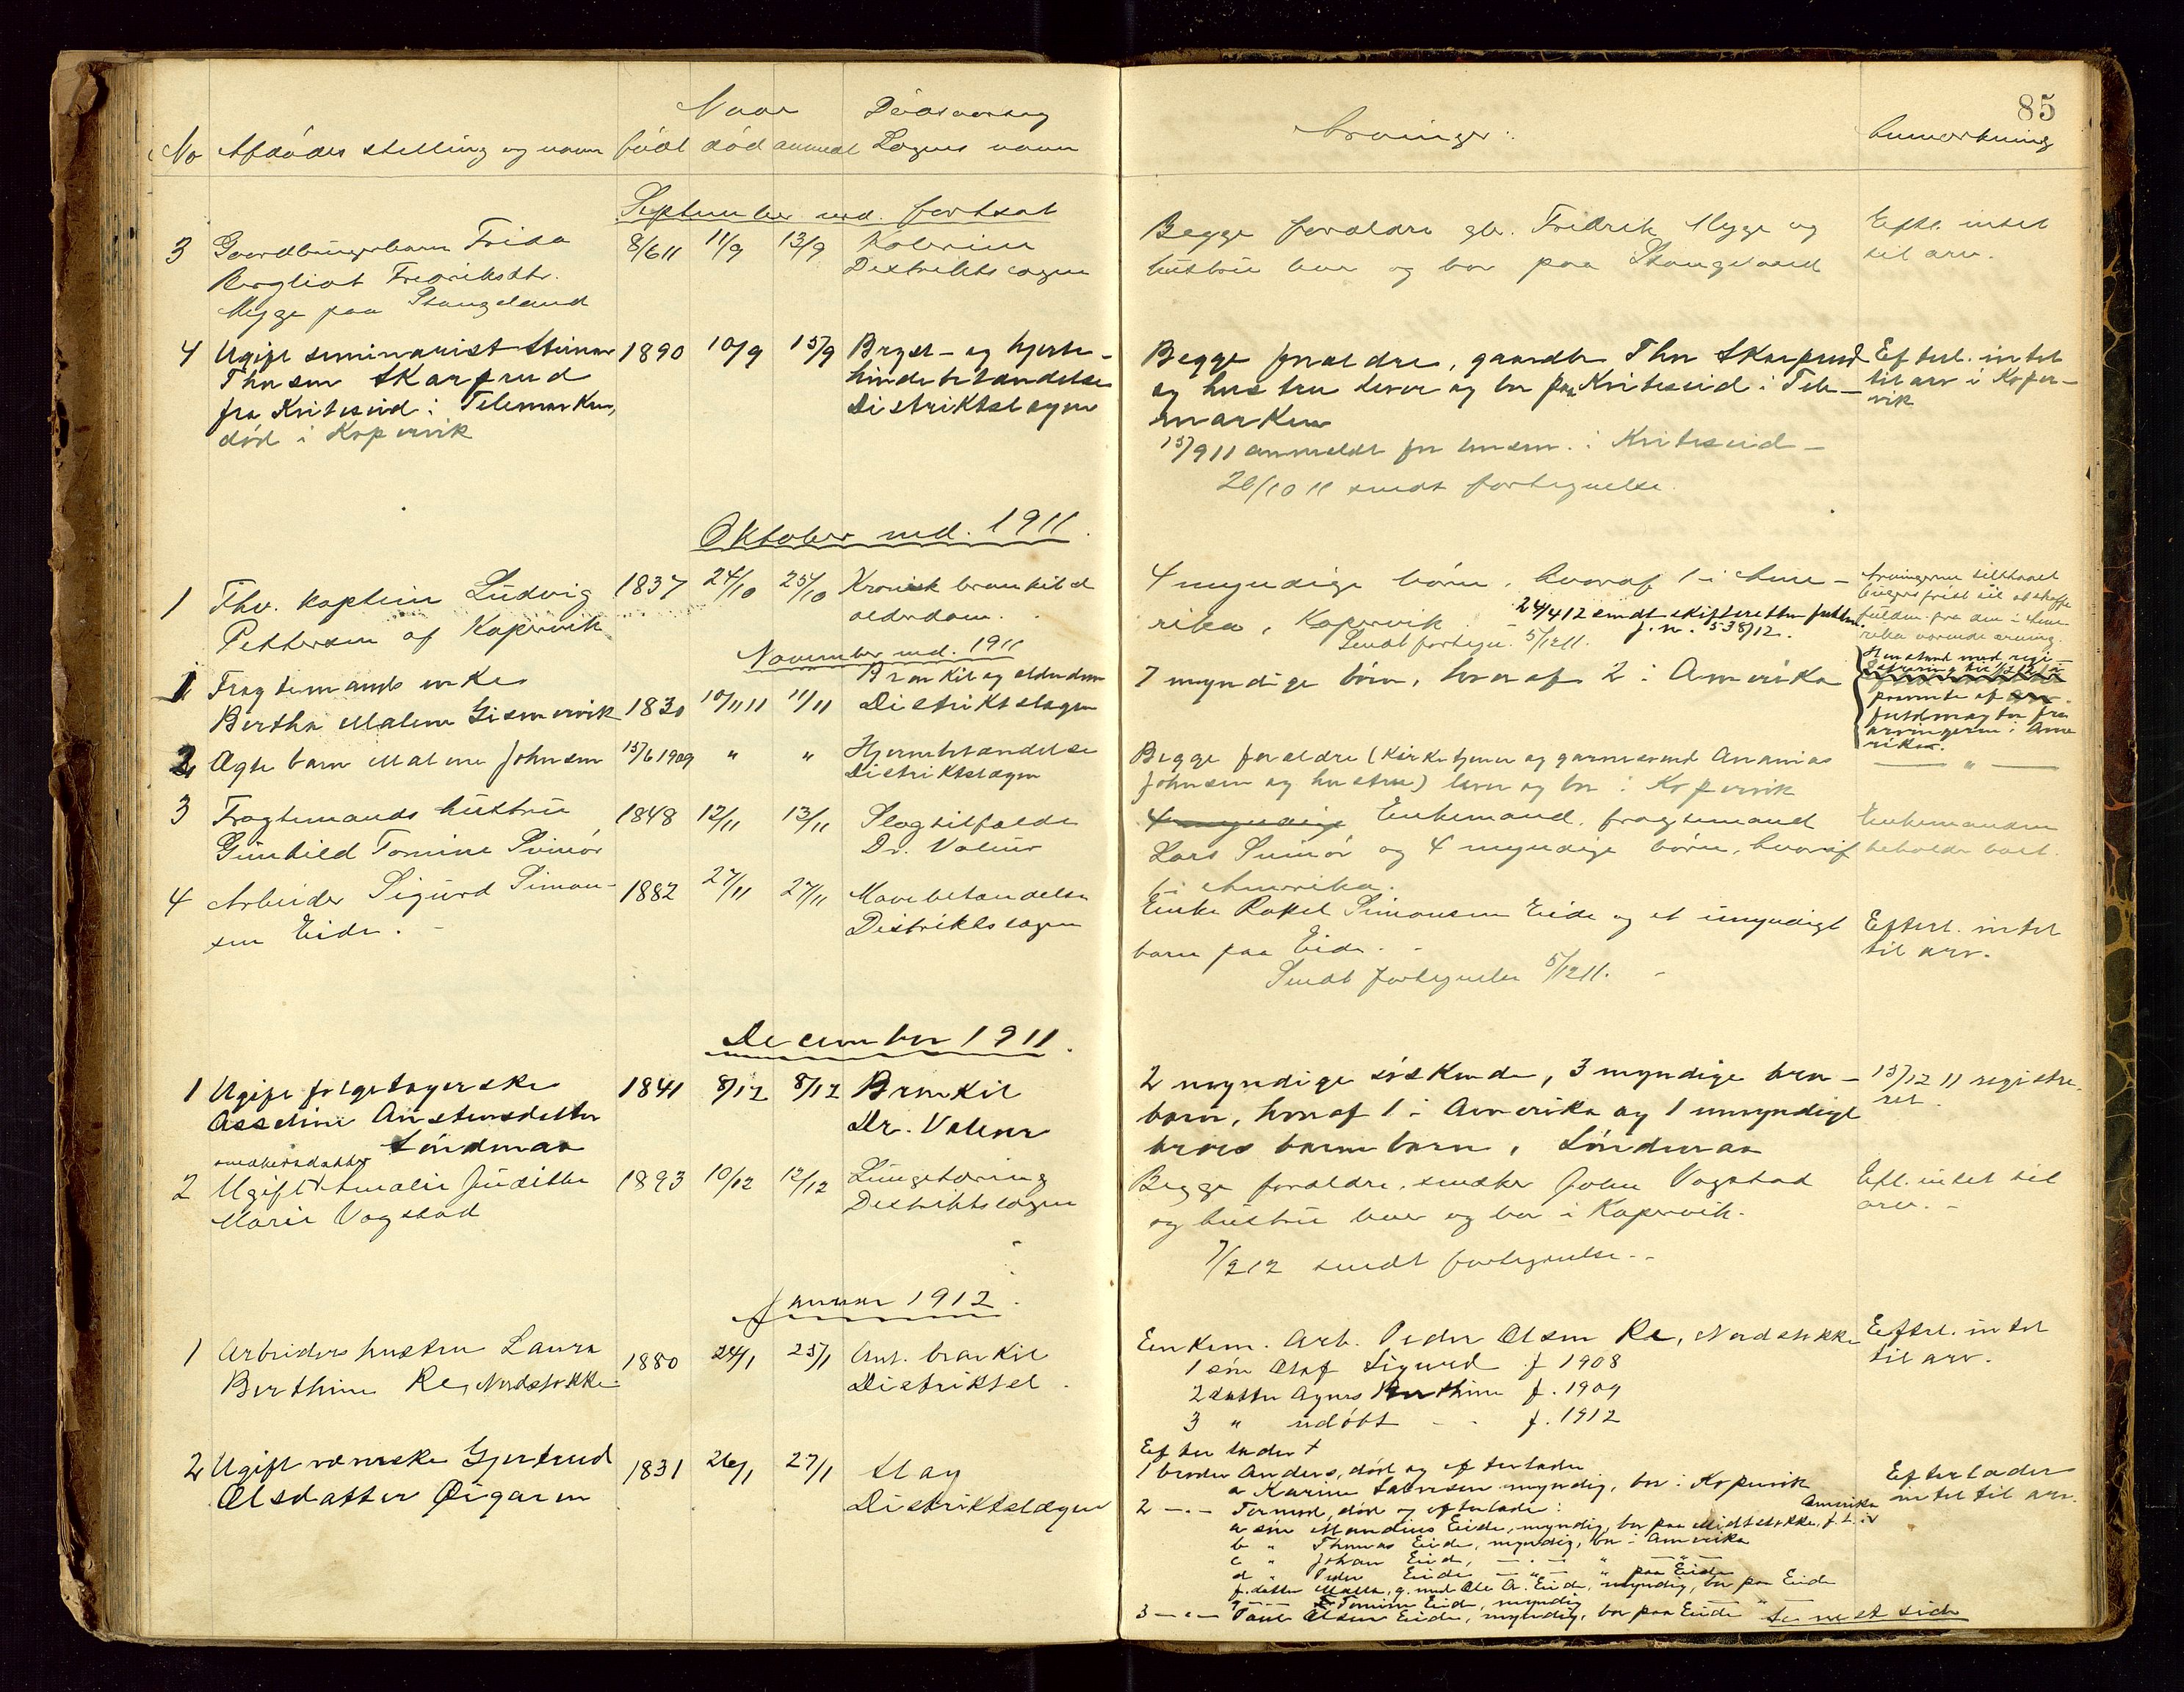 85
Naar Dødsaarsag
No Afdødes stilling og navn født død anmeldt Lægens navn Arvinger: Anmærkning
September md. fortsat
3 Gaardbrugerbarn Frida 8/6 11 11/9 13/9 Kolerine
Bergliot Fredriksdtr. Distriktslægen
Mygge paa Stangeland
Begge forældre gbr. Fredrik Mygge og
hustru lever og bor paa Stangeland
Efterl. intet
til arv.
4 Ugift seminarist Steinar 1890 10/9 15/9 Bryst- og hjerte-
Thorsen Skarprud hindebetændelse
fra Kviteseid i Telemarken, Distriktslægen
død i Kopervik
Begge forældre, gaardbr Thor Skarprud
og hustru lever og bor paa Kviteseid i Tele-
marken
15/9 11 anmeldt for lensm. i Kviteseid -
26/10 11 sendt fortegnelse.
Efterl. intet
til arv i Koper-
vik
Oktober md. 1911.
1 Fhv. kaptein Ludvig 1837 24/10 25/10 Kronisk bronkit &
Pettersen af Kopervik alderdom.
4 myndige børn, hvoraf 1 i Ame-
rika, Kopervik. - 24/4 12 sendt skifteretten
j.n. 538/12.
Sendt fortegn. 5/12 11.
Arvingerne tilstaaet
fra den i Ame-
rika værende arving.
November md. 1911
1 Fragtemands enke Bronkit og alderdom
Bertha Malene Gismervik 1830 10/11 11 11/11 Distriktslægen
7 myndige børn, hvoraf 2 i Amerika
Henstand med regi-
paavente af
fuldmagter fra
arvingerne i Ame
rika.
2 Ægte barn Malene Johnsen 15/6 1909 " " Hjernebetændelse
Distriktslægen
Begge forældre (Kirketjener og garnmand Ananias
Johnsen og hustru) lever og bor i Kopervik
— " —
3 Fragtemands hustru 1848 12/11 13/11 Slagtilfælde
Gunhild Tomine Svinør Dr. Valeur
4 myndige Enkemand, fragtemand
Lars Svinør og 4 myndige børn, hvoraf
1 i Amerika.
Enkemanden
beholdt boet.
4 Arbeider Sigurd Simon- 1882 27/11 27/11 Mavebetændelse
sen Eide. - Distriktslægen
Enke Rakel Simonsen Eide og et umyndigt
barn paa Eide. -
Sendt fortegnelse 5/12 11. -
Efterl. intet
til arv.
December 1911.
1 Ugift følgetagerske 1841 8/12 8/12 Bronkit
Asseline Anstensdatter Dr. Valeur
Søndenaa
2 myndige søskende, 3 myndige bro-
børn, hvoraf 1 i Amerika og 1 umyndigt
brors barnebarn, Søndenaa
13/12 11 registre-
ret
snedkersdatter
2 Ugift Amalie Judithe 1893 10/12 12/12 Lungetæring
Marie Vagstad Distriktslægen
Begge forældre, snedker John Vagstad
og hustru lever og bor i Kopervik.
7/2 12 sendt fortegnelse. -
Eft. intet til
arv. -
Januar 1912.
1 Arbeiders hustru Laura 1880 24/1 25/1 Ant. bronkit
Berthine Re, Nordstokke Distriktsl.
Enkem. Arb. Peder Olsen Re, Nordstokke
1 søn Olaf Sigurd f. 1908
2 datter Agnes Berthine f. 1909
3 " udøbt - - f. 1912
Efterl. intet
til arv.
2 Ugift væverske Gjertrud 1831 26/1 27/1 Slag
Olsdatter Øigaren Distriktslægen
Efterlader
1 broder Anders, død og efterlader
a Karine Salvesen myndig, bor i Kopervik
2 - " - Tormod, død og efterlader:
a søn Mandius Eide, myndig, bor paa Midtstokke, f. t. i Amerika
b " Thomas Eide, myndig, bor i Amerika
c " Johan Eide, - " - " - " -
d " Peder Eide - " - " paa Eide
f. datter Malla, g. med Ole A. Eide, myndig, bor paa Eide
g - " - Tomine Eide, myndig - " -
3 - " - Paul Olsen Eide, myndig, bor paa Eide
Se næst side
Efterlader
intet til arv.